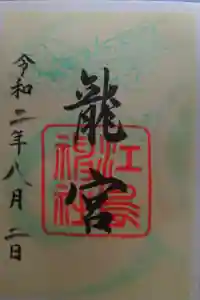 龍宮
江島神社
令和二年八月二日